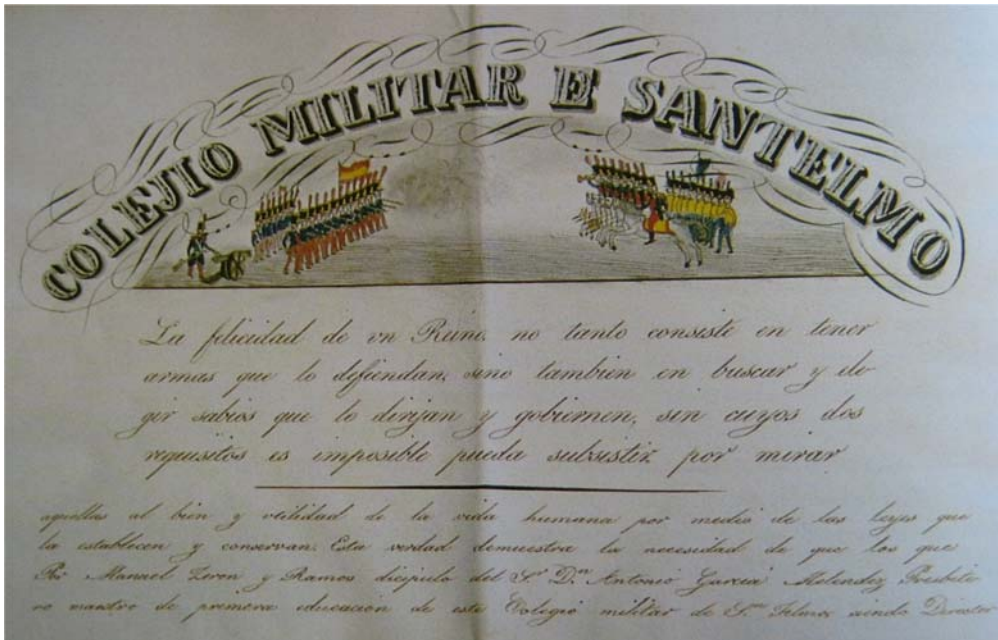 COLEJIO MILITAR E SANTELMO
La felicidad de vn Reino, no tanto consiste en tener
armas que lo defiendan, sino tambien en buscar y ele
gir sabios que lo dirijan y gobiernen, sin cuyos dos
requisitos es imposible pueda subsistir por mirar
aquellos al bien y vtilidad de la vida humana por medio de las leyes que
la establecen y conservan. Esta verdad demuestra la necesidad de que los que
Por Manuel Zeron y Ramos dicipulo del Sor. Dn. Antonio Garcia Melendez Presbite
ro maestro de primera educacion de este Colegio militar de Sn. Telmo, siendo Director